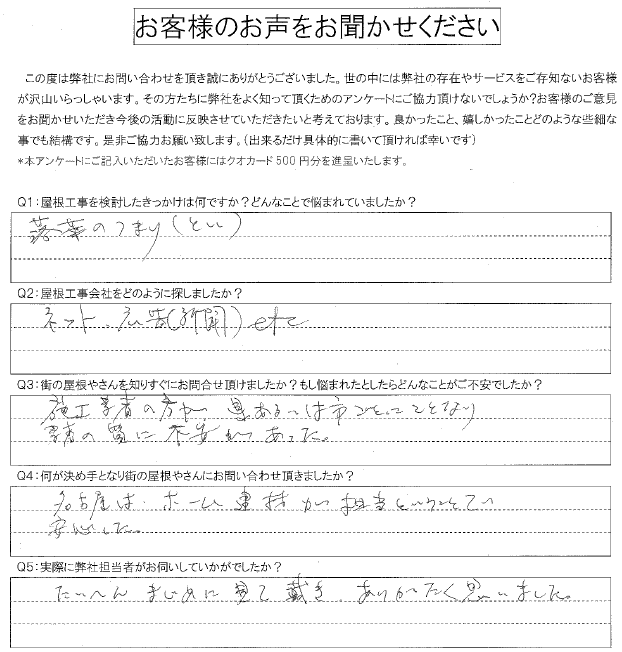 お客様のお声をお聞かせください
この度は弊社にお問い合わせを頂き誠にありがとうございました。世の中には弊社の存在やサービスをご存知ないお客様
が沢山いらっしゃいます。その方たちに弊社をよく知って頂くためのアンケートにご協力頂けないでしょうか?お客様のご意見
をお聞かせいただき今後の活動に反映させていただきたいと考えております。良かったこと、嬉しかったことどのような些細な
事でも結構です。是非ご協力お願い致します。(出来るだけ具体的に書いて頂ければ幸いです)
*本アンケートにご記入いただいたお客様にはクオカード500円分を進呈いたします。
Q1:屋根工事を検討したきっかけは何ですか?どんなことで悩まれていましたか?
落葉のつまり(とい)
Q2:屋根工事会社をどのように探しましたか?
ネット、広告(新聞)etc
Q3:街の屋根やさんを知りすぐにお問合せ頂けましたか?もし悩まれたとしたらどんなことがご不安でしたか?
施工業者の方が 県あるいは市ごとにことなり
業者の質に不安があった。
Q4:何が決め手となり街の屋根やさんにお問い合わせ頂きましたか?
名古屋は、ホーム建材が担当という
安心した。
Q5:実際に弊社担当者がお伺いしていかがでしたか?
たいへんまじめに見て戴き、ありがたく思いました。